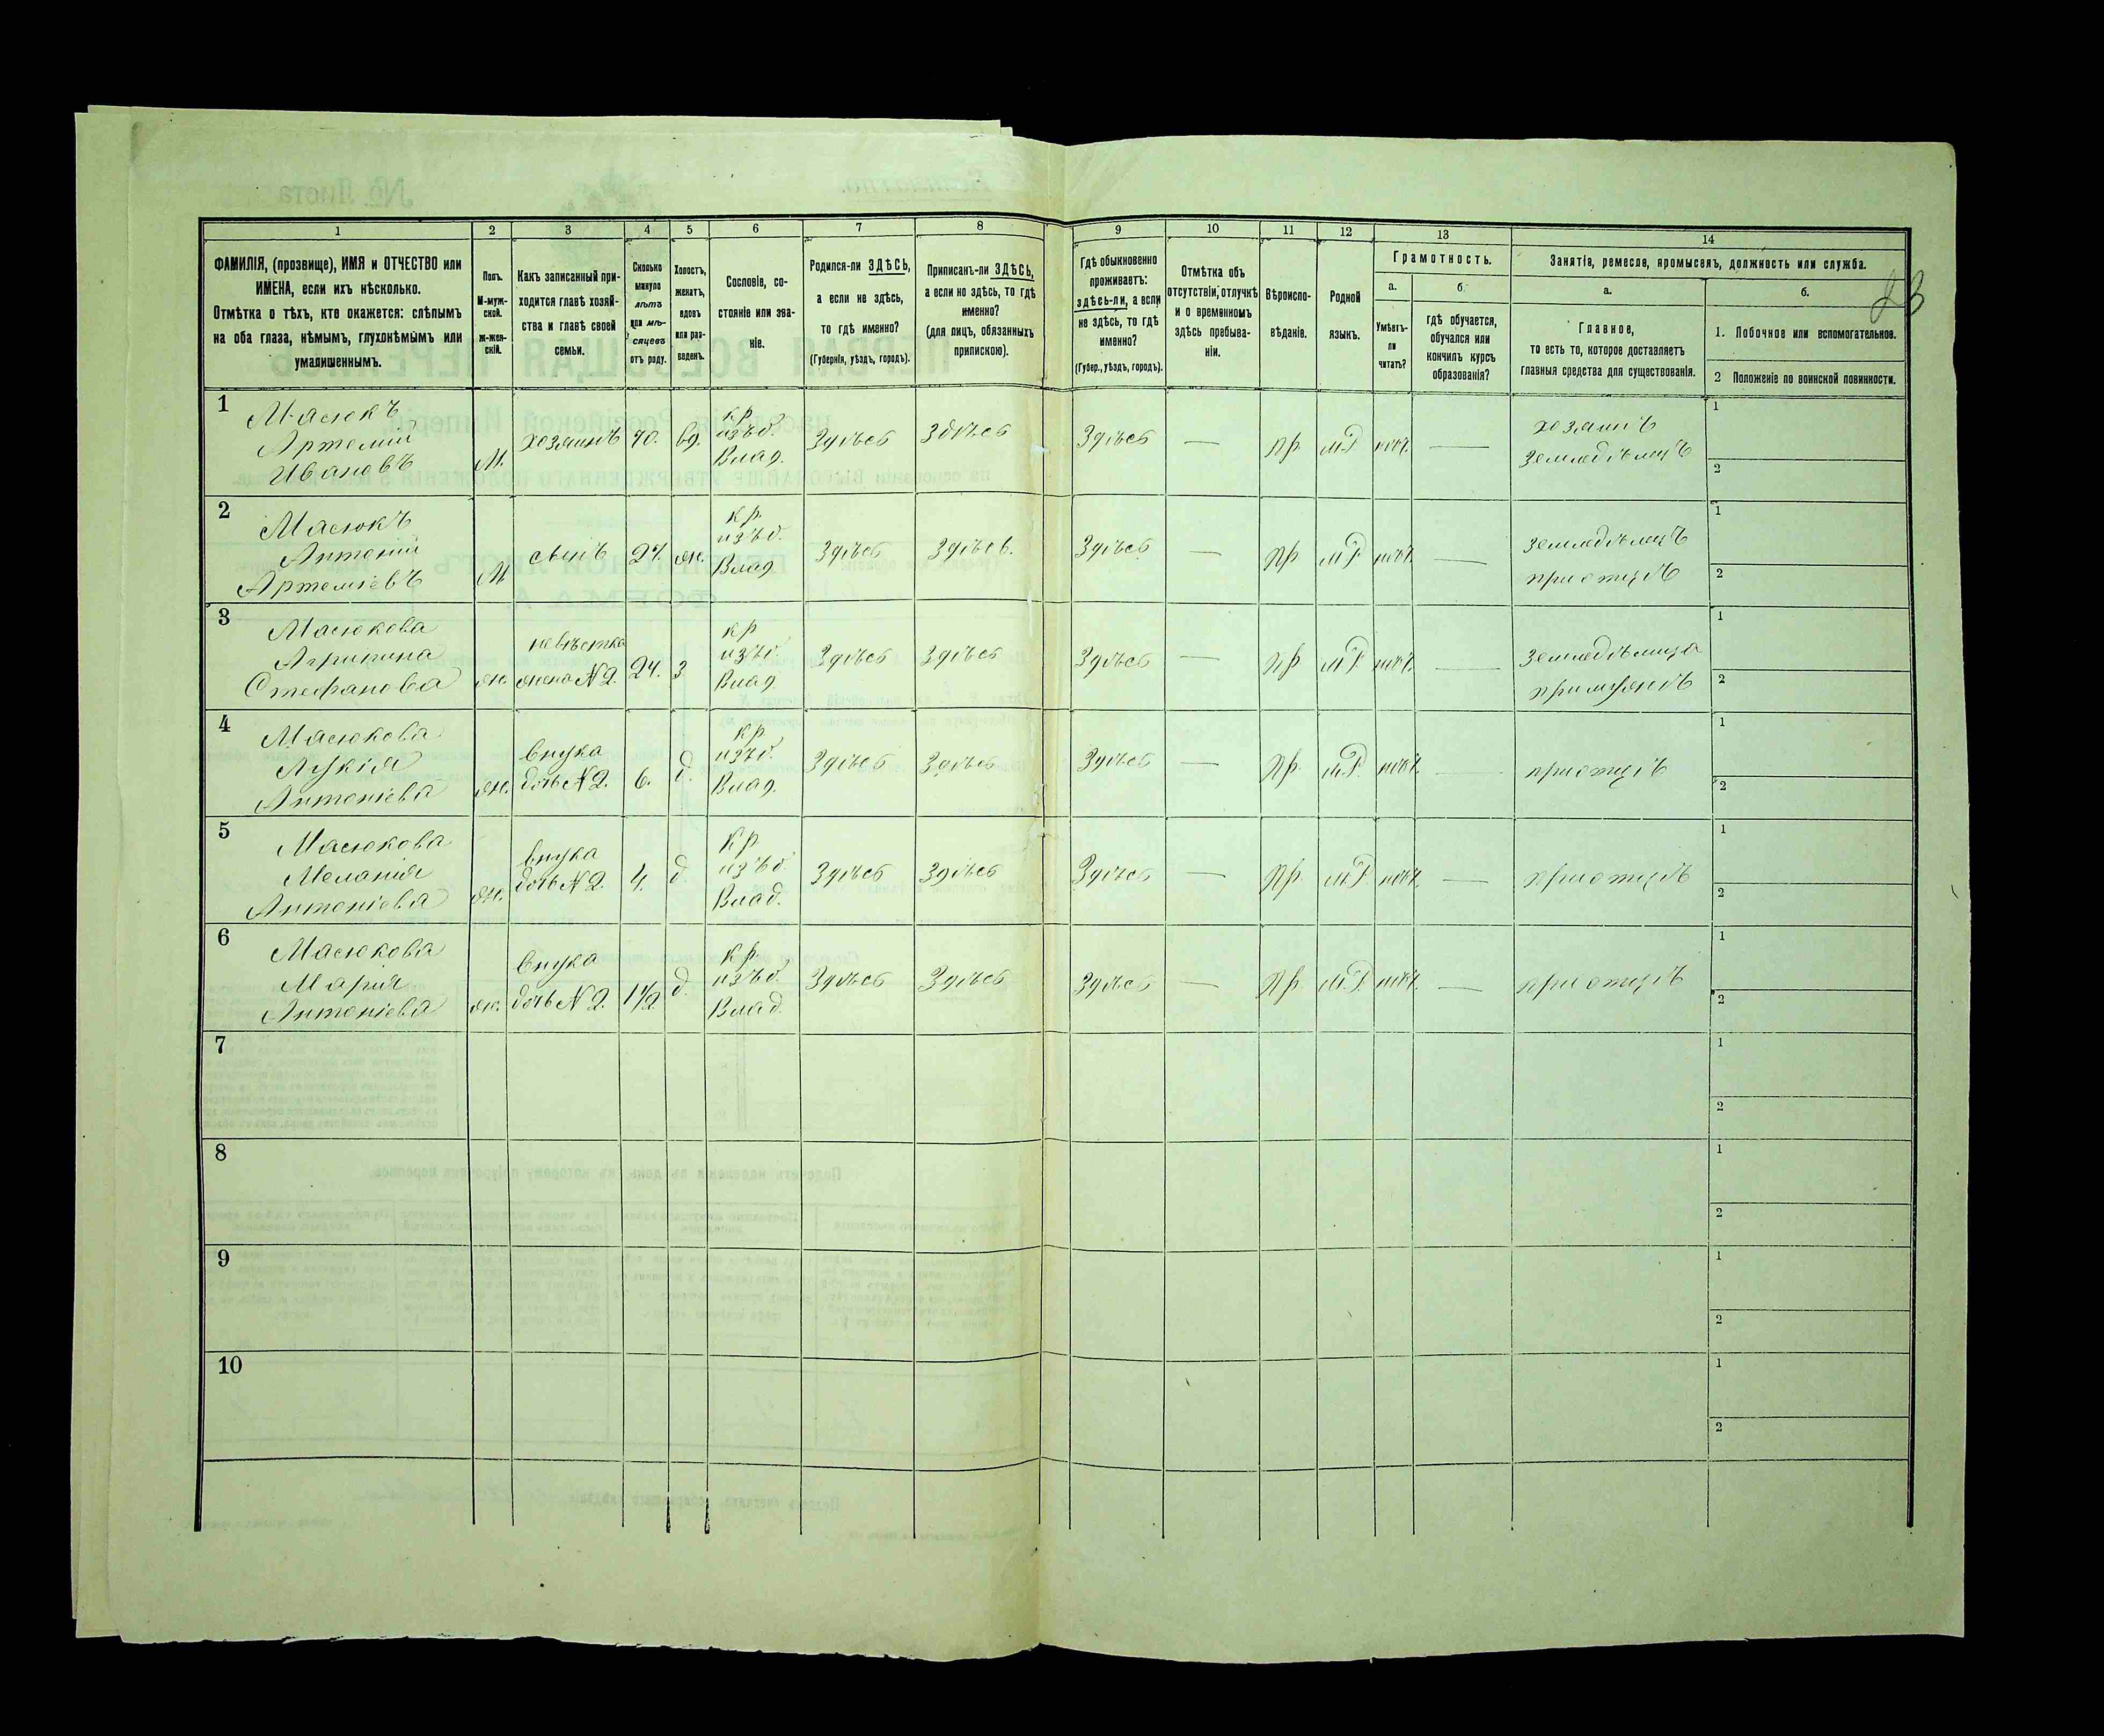 1
2
3
4
5
6
7
8
9
10
11
12
13
14
ФАМИЛІЯ, (прозвище), ИМЯ и ОТЧЕСТВО или
ИМЕНА, если ихъ нѣсколько.
Отмѣтка о тѣхъ, кто окажется: слѣпымъ
на оба глаза, нѣмымъ, глухонѣмымъ или
умалишеннымъ.
Полъ.
М-муж-
ской.
ж-жен-
скій.
Какъ записанный при-
ходится главѣ хозяй-
ства и главѣ своей
семьи.
Сколько
минуло
лѣтъ
или мѣ-
сяцевъ
отъ роду.
Холостъ,
женатъ,
вдовъ
или раз-
веденъ.
Сословіе, со-
стояніе или зва-
ніе.
Родился-ли ЗДѢСЬ,
а если не здѣсь,
то гдѣ именно?
(Губернія, уѣздъ, городъ).
Приписанъ-ли ЗДѢСЬ,
а если не здѣсь, то гдѣ
именно?
(для лицъ, обязанныхъ
припискою).
Гдѣ обыкновенно
проживаетъ:
здѣсь-ли, а если
не здѣсь, то гдѣ
именно?
(Губер., уѣздъ, городъ).
Отмѣтка объ
отсутствіи, отлучкѣ
и о временномъ
здѣсь пребыва-
ніи.
Вѣроиспо-
вѣданіе.
Родной
языкъ.
Грамотность.
а.
Умѣетъ-
ли
читать?
б.
Гдѣ обучается,
обучался или
кончилъ курсъ
образованія?
Занятія, ремесло, промыселъ, должность или служба.
а.
Главное,
то есть то, которое доставляетъ
главныя средства для существованія.
б.
1. Побочное или вспомогательное.
2 Положеніе по воинской повинности.
23
1
Масюкъ
Артемій
Ивановъ
М.
хозяинъ
70.
вд.
кр
изъ б.
Влад.
Здѣсь
Здѣсь
Здѣсь
—
пр.
м.Р.
нѣт.
—
хозяинъ
земледѣлецъ
1
2
2
Масюкъ
Антоній
Артеміевъ
М
сынъ
27.
ж.
кр.
изъ б.
Влад
Здѣсь
Здѣсь.
Здѣсь
—
пр
м Р
нѣт.
—
земледѣлецъ
при отцѣ
1
2
3
Масюкова
Агрипина
Стефанова
ж.
невѣстка
жена N 2.
24.
З
кр
изъ б.
Влад.
Здѣсь
Здѣсь
Здѣсь
—
пр
м Р.
нѣт.
—
земледѣлица
при мужѣ
1
2
4
Масюкова
Лукія
Антоніева
ж.
внука
дочь N 2.
6.
д.
кр
изъ б.
Влад.
Здѣсь
Здѣсь
Здѣсь
—
Пр.
м.Р.
нѣт.
—
при отцѣ
1
2
5
Масюкова
Меланія
Антоніева
ж.
внука
дочь N 2.
4.
д.
кр
изъ б.
Влад.
Здѣсь
Здѣсь
Здѣсь
—
Пр.
м.Р.
нѣт.
—
при отцѣ
1
2
6
Масюкова
Марія
Антоніева
ж.
внука
дочь N 2.
1 1/2
д.
кр.
изъ б.
Влад.
Здѣсь
Здѣсь
Здѣсь
—
Пр.
м.Р.
нѣт.
—
при отцѣ
1
2
7
1
2
8
1
2
9
1
2
10
1
2